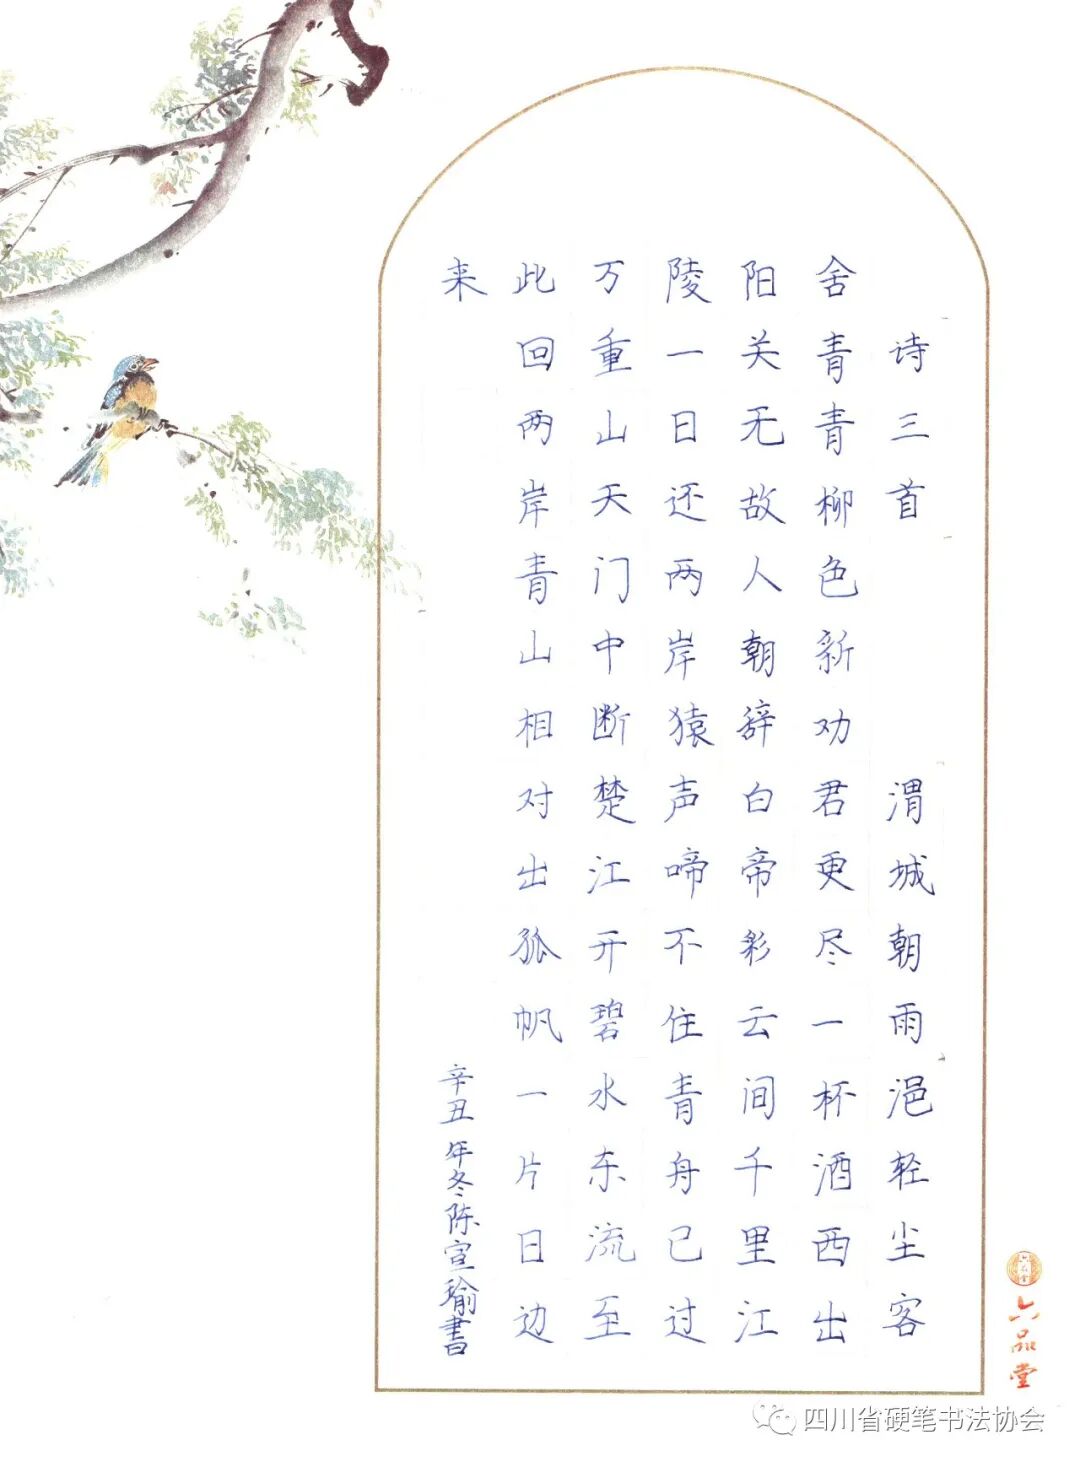 诗三首 渭城朝雨浥轻尘客
舍青青柳色新劝君更尽一杯酒西出
阳关无故人朝辞白帝彩云间千里江
陵一日还两岸猿声啼不住青舟已过
万重山天门中断楚江开碧水东流至
此回两岸青山相对出孤帆一片日边
来
辛丑年冬陈宣瑜书
六品堂
六品堂
四川省硬笔书法协会